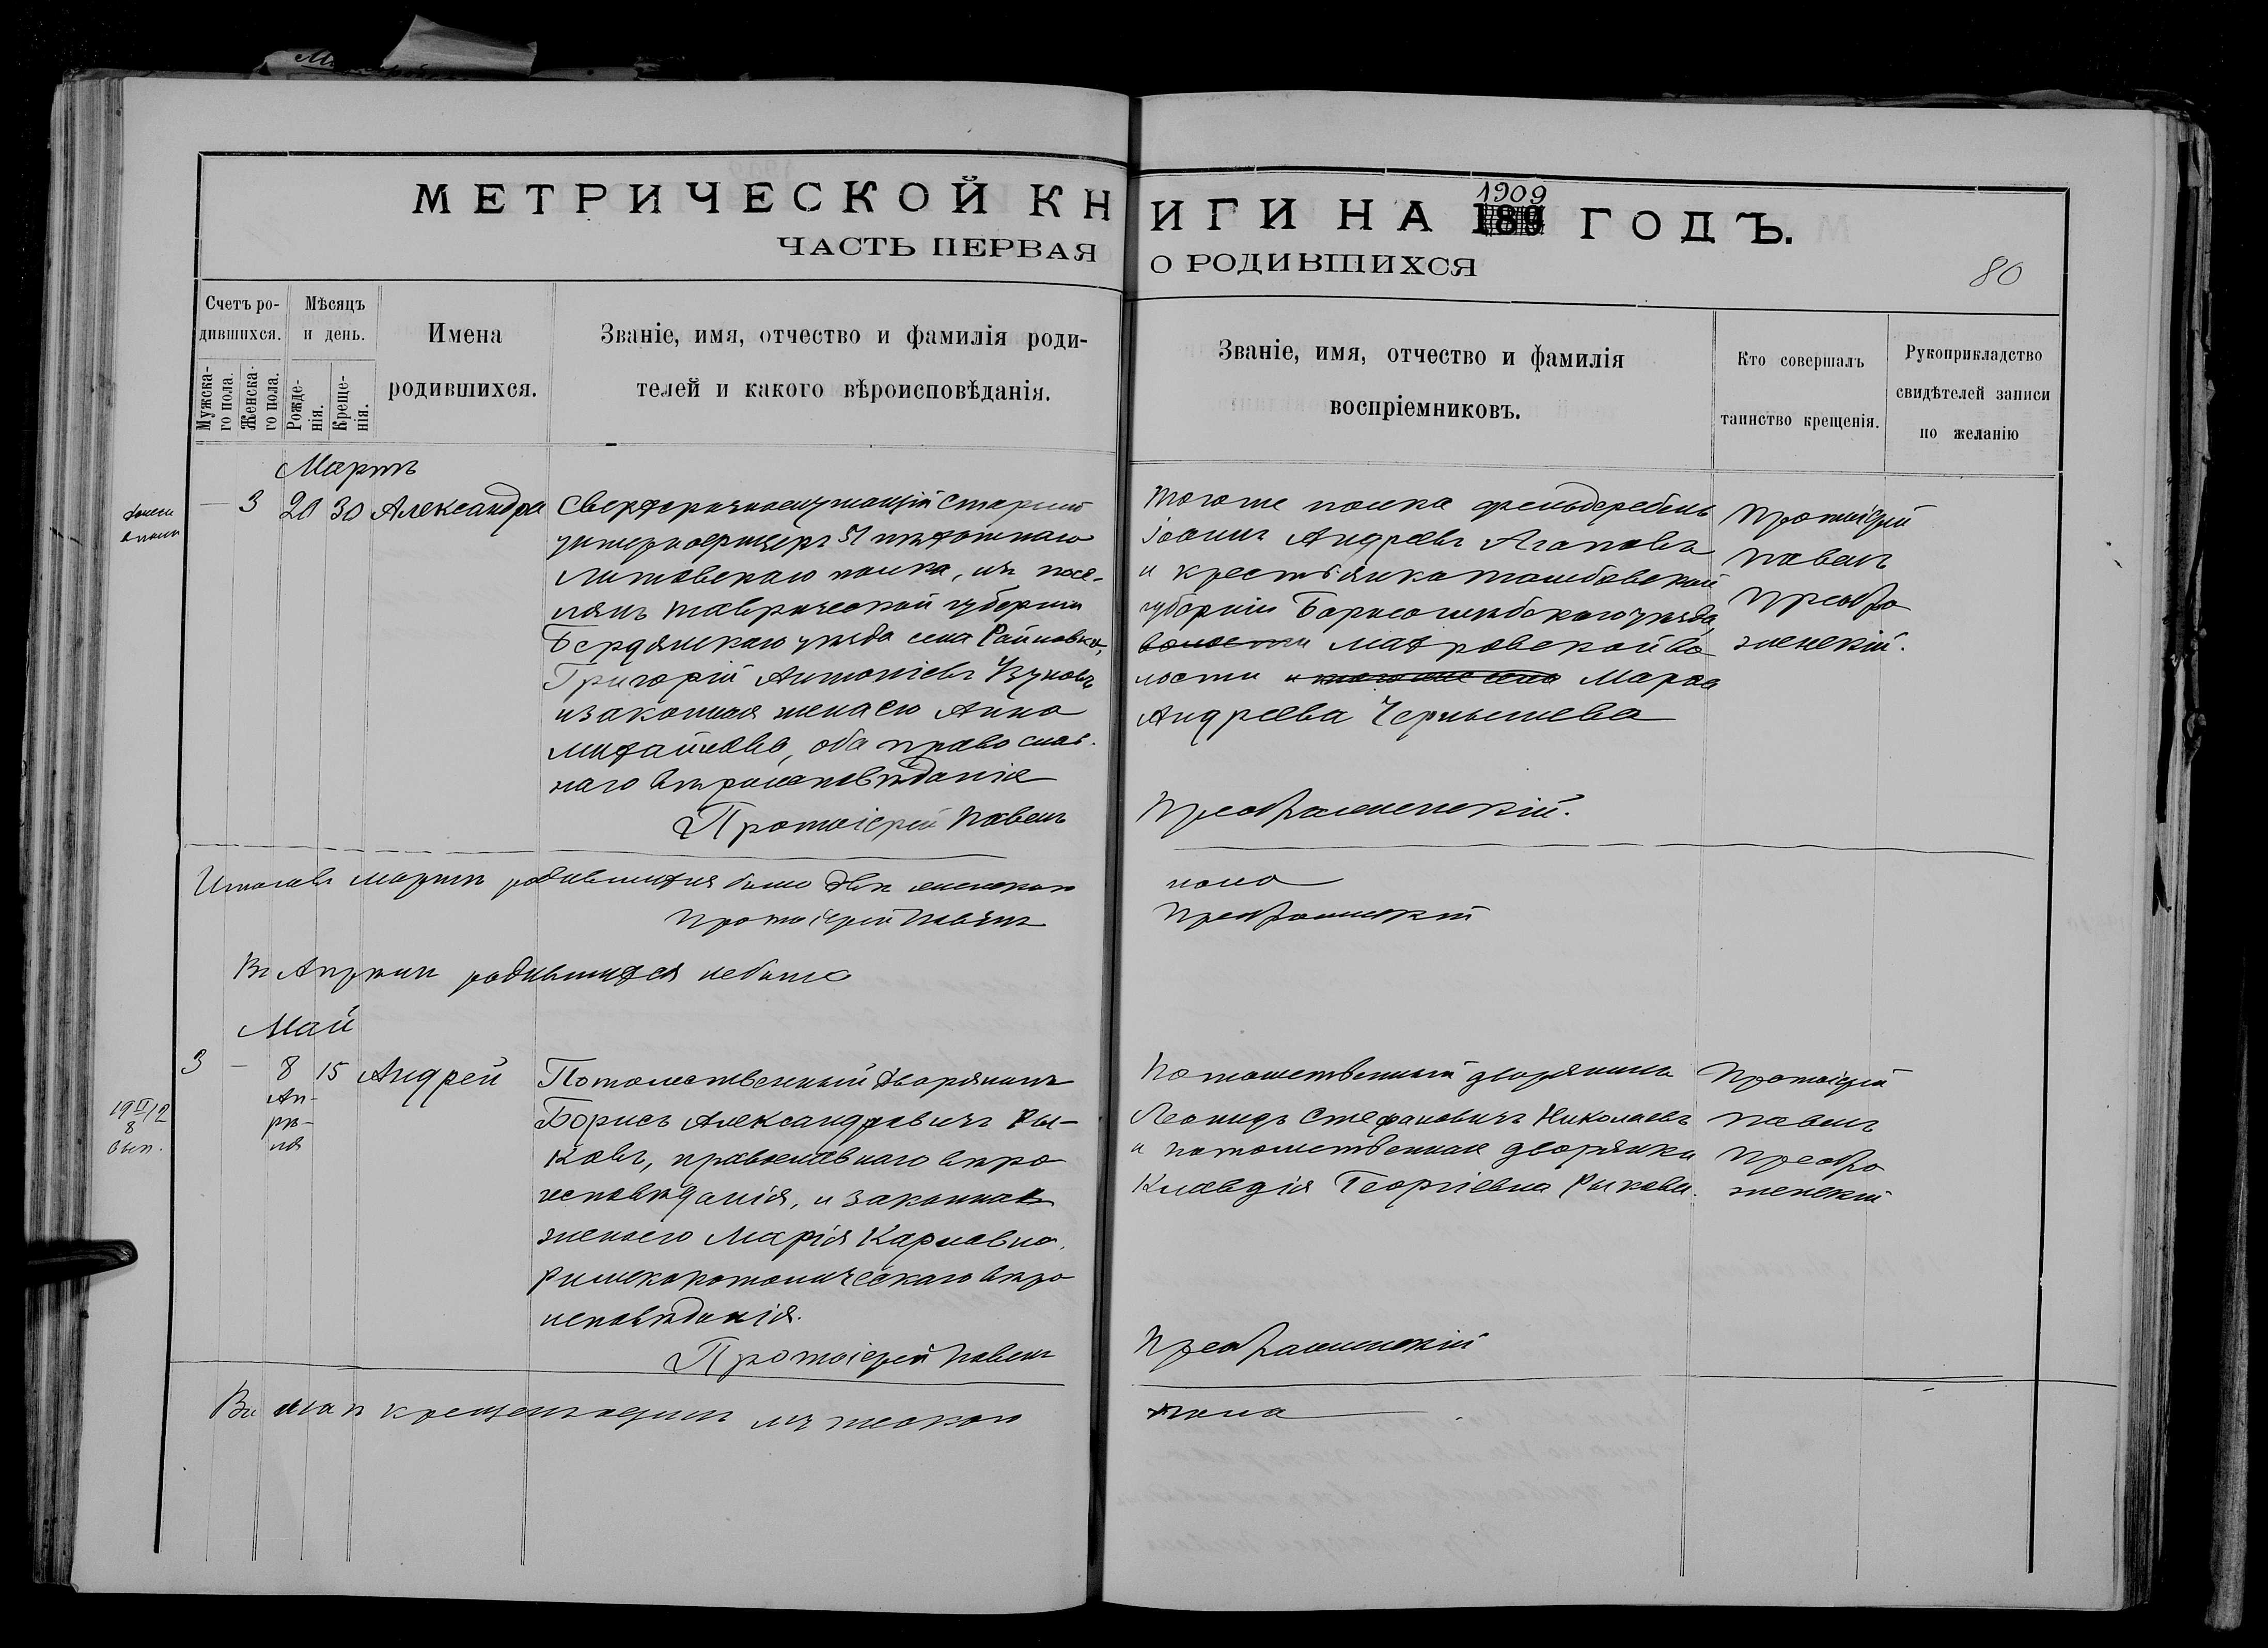 МЕТРИЧЕСКОЙ КНИГИ НА 1909 ГОДЪ.
ЧАСТЬ ПЕРВАЯ О РОДИВШИХСЯ
80
Счетъ ро-
дившихся.
Мужска-
го пола.
Женска-
го пола.
Мѣсяцъ
и день.
Рожде-
нія.
Креще-
нія.
Имена
родившихся.
Званіе, имя, отчество и фамилія роди-
телей и какого вѣроисповѣданія.
Званіе, имя, отчество и фамилія
воспріемниковъ.
Кто совершалъ
таинство крещенія.
Рукоприкладство
свидѣтелей записи
по желанію
Мартъ
— 3 20 30 Александра
Сверхсрочнослужащій старшій
унтерофицеръ 51 пѣхотнаго
Литовскаго полка, изъ посе-
лянъ Таврической губерніи
Бердянскаго уѣзда села Райновки,
Григорій Антоніевъ Узуновъ
и законная жена его Анна
Михайлова, оба православ-
наго вѣроисповѣданія
Протоіерей Павелъ
Тогоже полка фельдфебель
Іоаннъ Андреевъ Агаповъ
и крестьянка Тамбовской
губерніи Борисоглѣбскаго уѣзда,
волости Мавровской во
лости и тогоже села Марѳа
Андреева Чернышева
Преображенскій.
Протоіерей
Павелъ
Преобра
женскій.
Итого въ мартѣ родившихся было двѣ женскаго
пола
Протоіерей Павелъ
Преображенскій
Въ Апрѣлѣ родившихся небыло
Май
3 — 8 15 Андрей
Ап-
рѣ-
ля
19 II/8 12
вып.
Потомственный дворянинъ
Борисъ Александровичъ Ры-
ковъ, православнаго вѣро
исповѣданія, и законная
жена его Марія Карловна,
римскокатолическаго вѣро
исповѣданія.
Протоіерей Павелъ
Потомственный дворянинъ
Леонидъ Стефановичъ Николаевъ
и потомственная дворянка
Клавдія Георгіевна Рыкова.
Преображенскій
Протоіерей
Павелъ
Преобра
женскій
Въ маѣ крещенъ одинъ мужескаго
пола